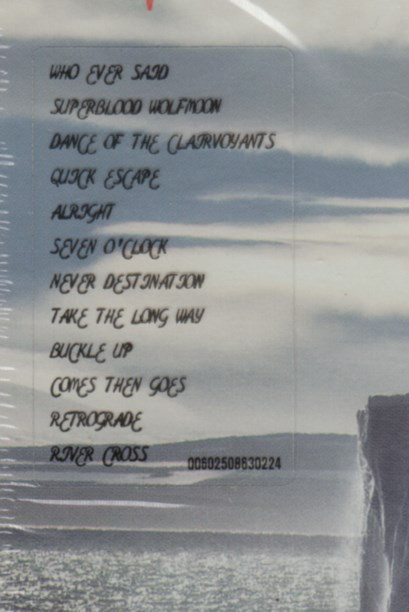 WHO EVER SAID
SUPERBLOOD WOLFMOON
DANCE OF THE CLAIRVOYANTS
QUICK ESCAPE
ALRIGHT
SEVEN O'CLOCK
NEVER DESTINATION
TAKE THE LONG WAY
BUCKLE UP
COMES THEN GOES
RETROGRADE
RIVER CROSS
00602508630224